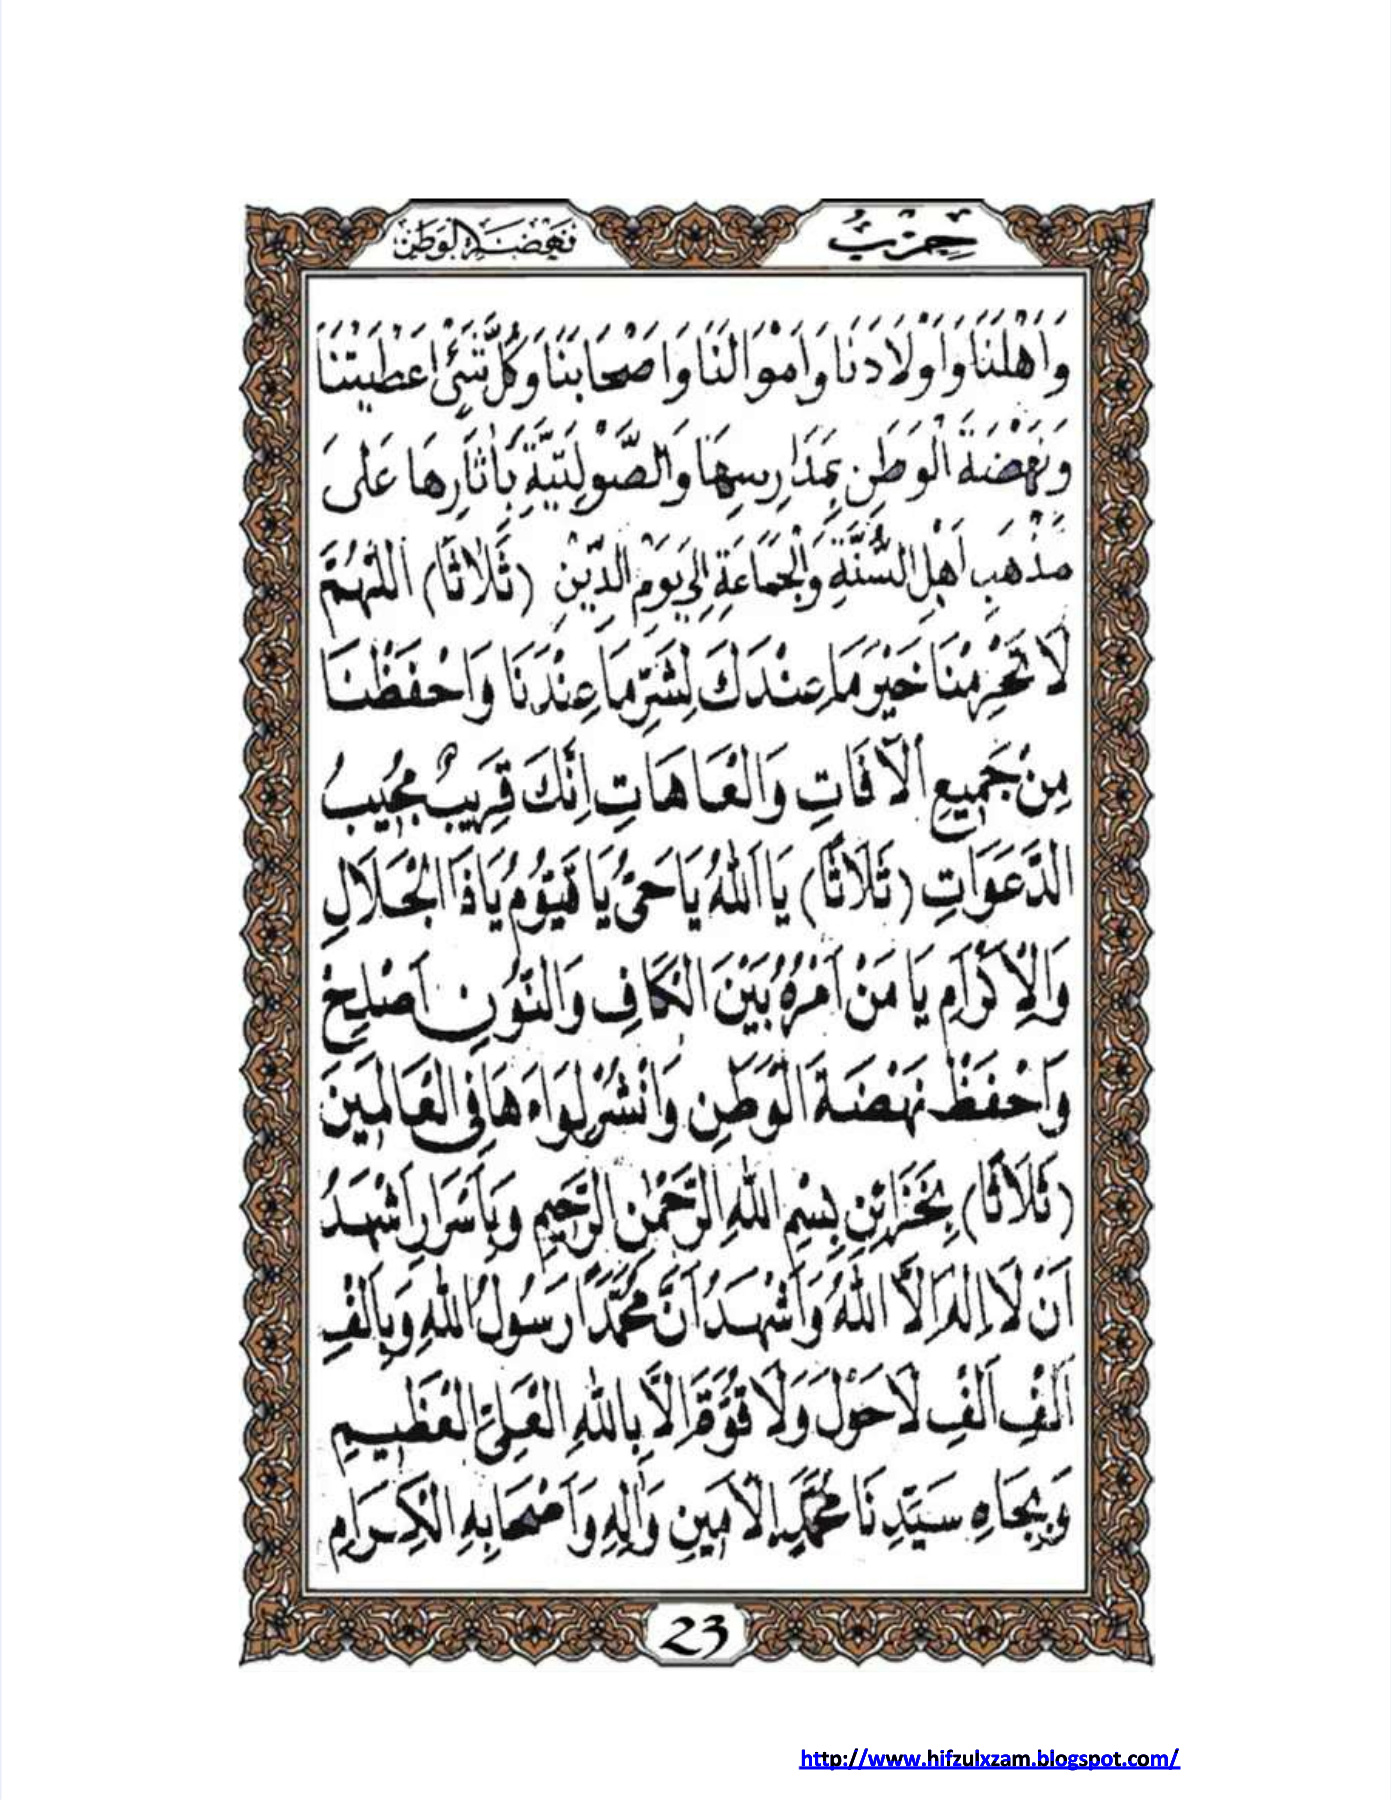 حِزْبُ
نَهْضَةِ الْوَطَنْ
وَاَهْلَنَا وَاَوْلَادَنَا وَاَمْوَالَنَا وَاَصْحَابَنَا وَكُلَّ شَيْءٍ اَعْطَيْتَنَا
وَنَهْضَةَ الْوَطَنِ بِمَدَارِسِهَا وَالصَّوْلَتِيَّةِ بِاٰثَارِهَا عَلَى
مَذْهَبِ اَهْلِ السُّنَّةِ وَالْجَمَاعَةِ اِلَى يَوْمِ الدِّيْنِ (ثَلَاثًا) اَللّٰهُمَّ
لَا تَحْرِمْنَا خَيْرَ مَا عِنْدَكَ لِشَرِّ مَا عِنْدَنَا وَاحْفَظْنَا
مِنْ جَمِيْعِ الْآفَاتِ وَالْعَاهَاتِ اِنَّكَ قَرِيْبٌ مُجِيْبُ
الدَّعَوَاتِ (ثَلَاثًا) يَا اَللّٰهُ يَا حَيُّ يَا قَيُّوْمُ يَا ذَا الْجَلَالِ
وَالْاِكْرَامِ يَا مَنْ اَمْرُهُ بَيْنَ الْكَافِ وَالنُّوْنِ اَصْلِحْ
وَاحْفَظْ نَهْضَةَ الْوَطَنِ وَانْشُرْ لِوَاءَهَا فِى الْعَالَمِيْنَ
(ثَلَاثًا) بِخَزَائِنِ بِسْمِ اللّٰهِ الرَّحْمٰنِ الرَّحِيْمِ وَبِاَسْرَارِ اَشْهَدُ
اَنْ لَا اِلٰهَ اِلَّا اللّٰهُ وَاَشْهَدُ اَنَّ مُحَمَّدًا رَسُوْلُ اللّٰهِ وَبِاَلْفِ
اَلْفِ اَلْفِ لَا حَوْلَ وَلَا قُوَّةَ اِلَّا بِاللّٰهِ الْعَلِيِّ الْعَظِيْمِ
وَبِجَاهِ سَيِّدِنَا مُحَمَّدٍ الْاَمِيْنِ وَاٰلِهِ وَاَصْحَابِهِ الْكِرَامِ
23
http://www.hifzulxzam.blogspot.com/